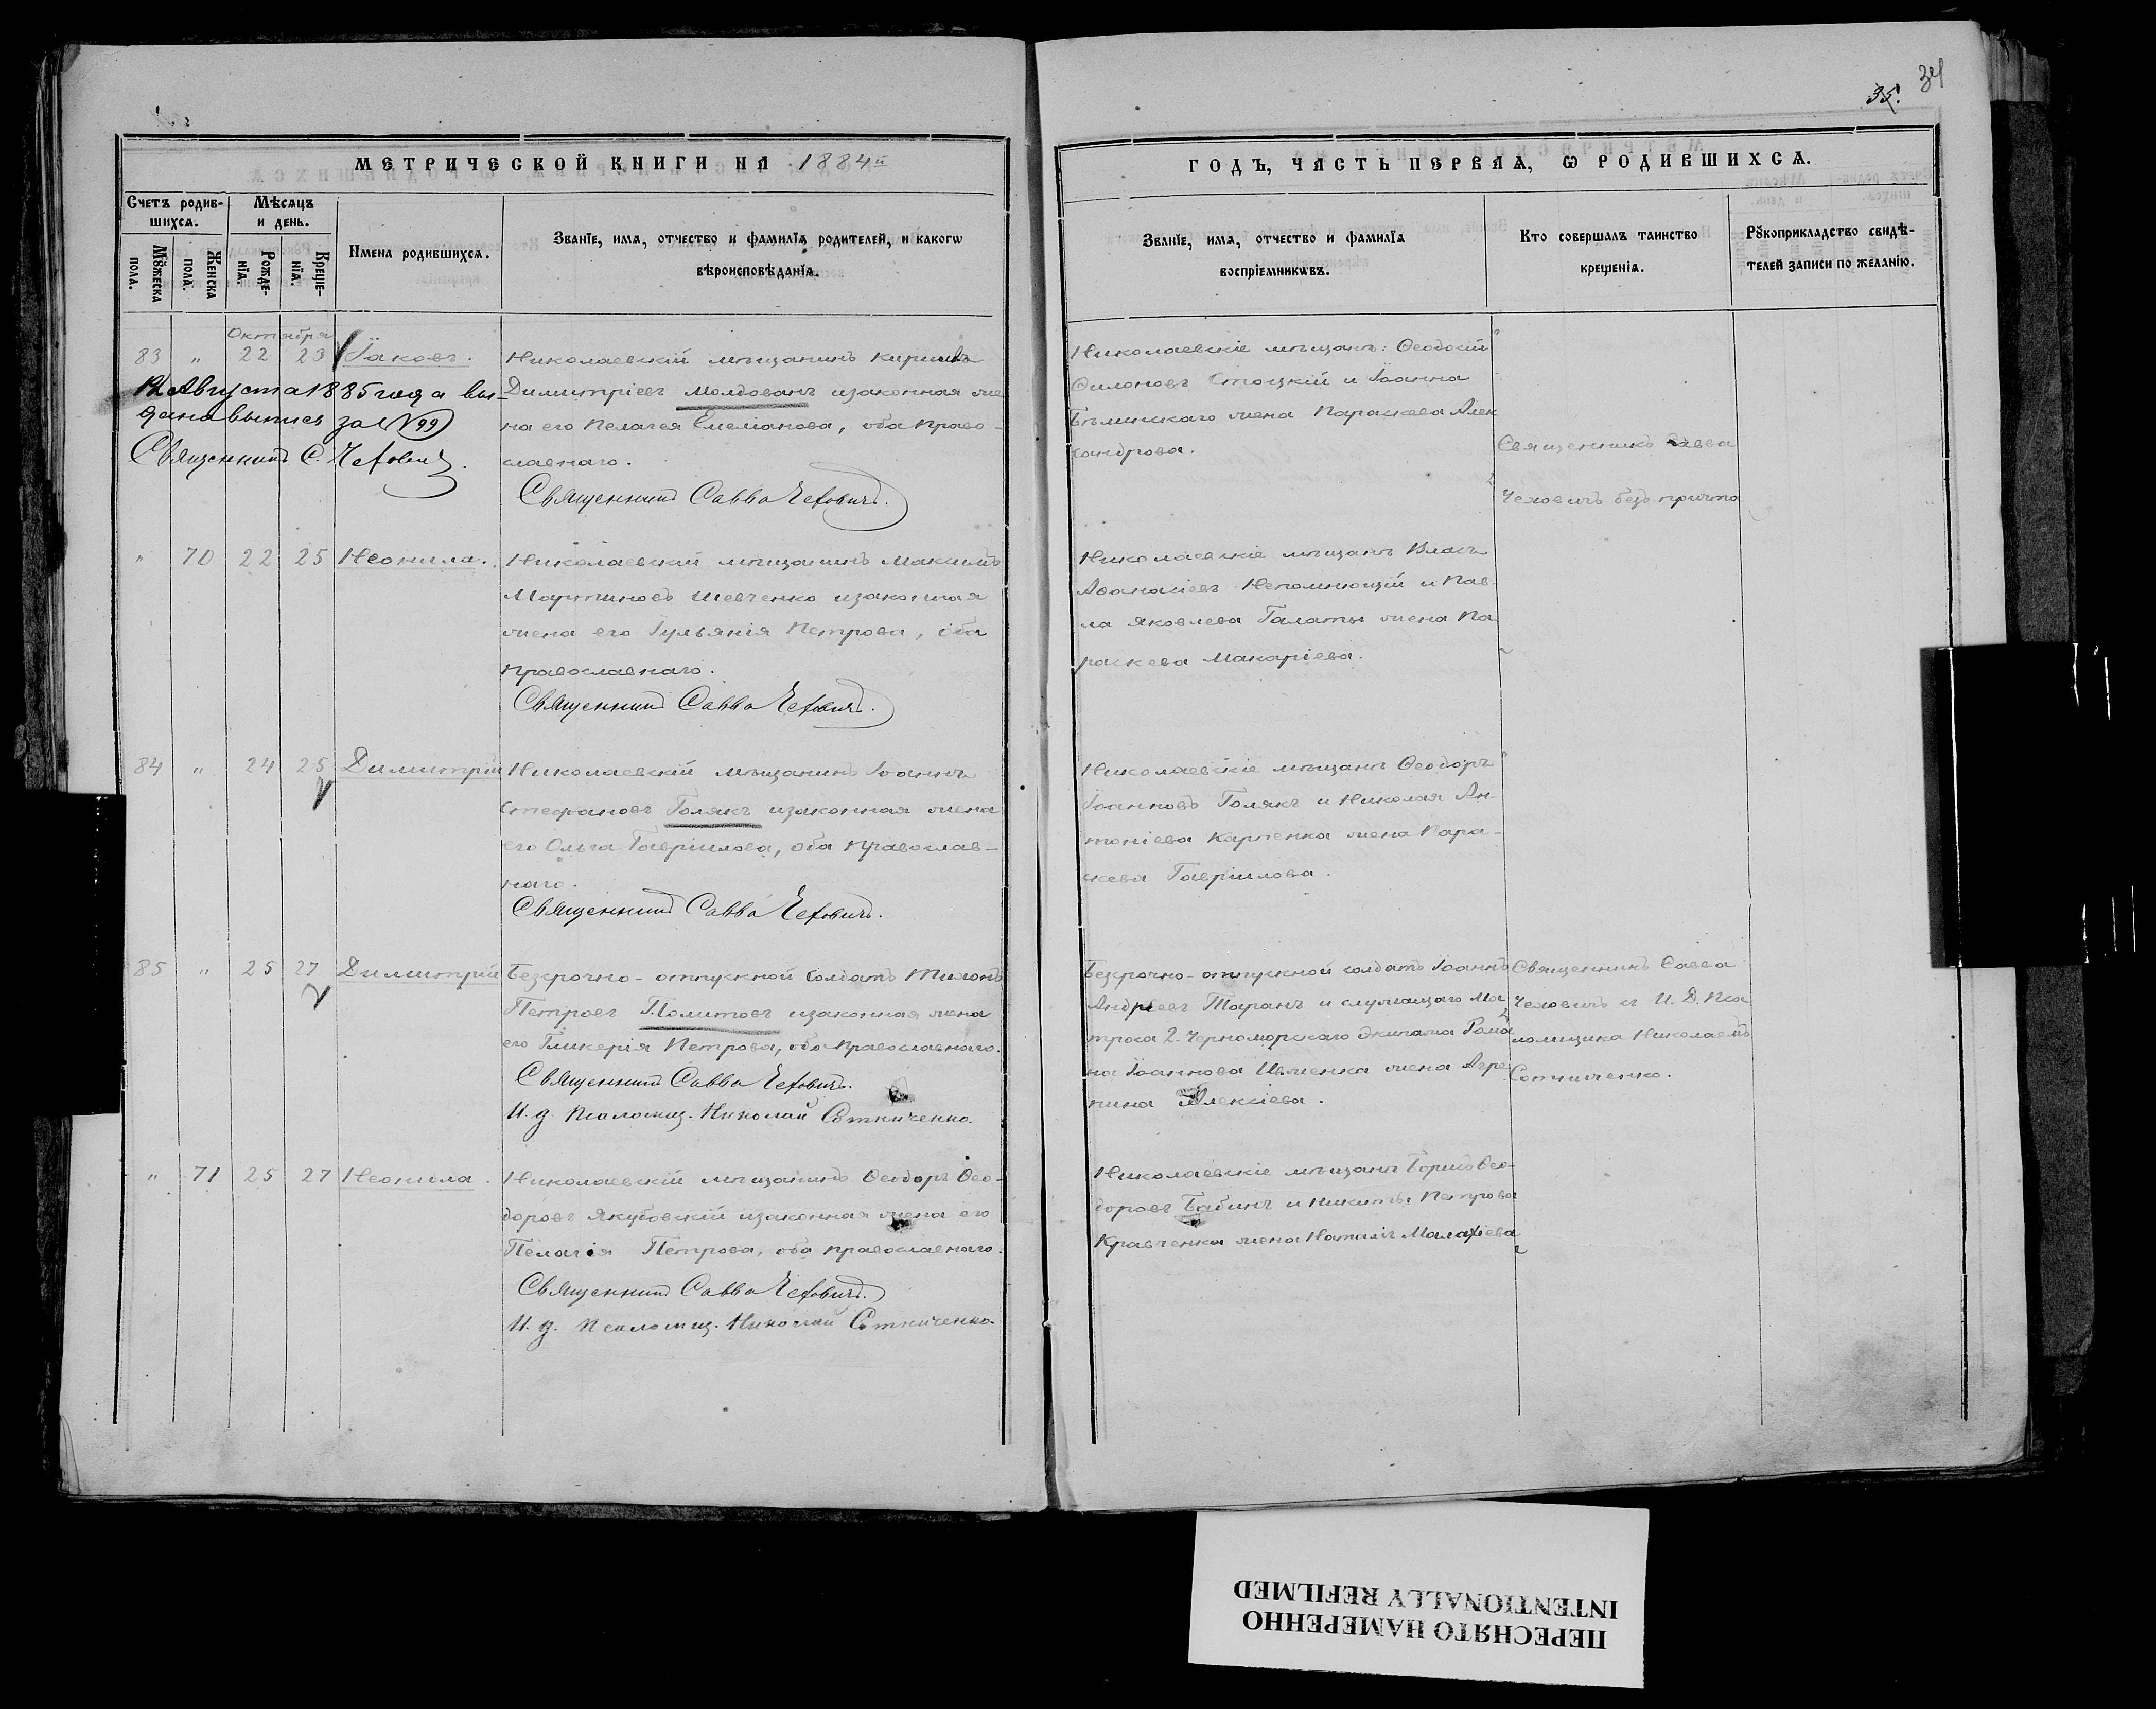 34
35.
МЕТРИЧЕСКОЙ КНИГИ НА 1884й
ГОДЪ, ЧАСТЬ ПЕРВАЯ, Ѡ РОДИВШИХСѦ.
Счетъ родив-
шихсѧ.
Мѣсѧцъ
и день.
Мꙋжеска
пола.
Женска
пола.
Рожде-
нїѧ.
Креще-
нїѧ.
Имена родившихсѧ.
Званїе, имѧ, отчество и фамилїѧ родителей, и какогѡ
вѣроисповѣданїѧ.
Званїе, имѧ, отчество и фамилїѧ
воспрїемникѡвъ.
Кто совершалъ таинство
крещенїѧ.
Рꙋкоприкладство свидѣ-
телей записи по желанїю.
Октября
83 " 22 23 Іаковъ.
Николаевскій мѣщанинъ Кириллъ
Димитріевъ Молдованъ изаконная же
на его Пелагея Емеліанова, оба право-
славнаго.
Священникъ Савва Чехович.
12 Августа 1885 года вы-
дана выпись за №99
Священникъ С. Чехович.
Николаевскіе мѣщане: Ѳеодосій
Филоновъ Стоцкій и Іоанна
жена Параскева Алек
сандрова.
Священникъ Савва
Чеховичъ безъ причта
" 70 22 25 Неонила.
Николаевскій мѣщанинъ Максимъ
Мартиновъ Шевченко изаконная
жена его Іульянія Петрова, оба
православнаго.
Священникъ Савва Чехович.
Николаевскіе мѣщане Власъ
Аѳанасіевъ Непомнющій и Пав-
ла Яковлева Галаты жена Па
раскева Макаріева.
84 " 24 25 Димитрій
Николаевскій мѣщанинъ Іоаннъ
Стефановъ Голякъ изаконная жена
его Ольга Гавріилова, оба православ-
наго.
Священникъ Савва Чехович.
Николаевскіе мѣщане Ѳеодоръ
Іоанновъ Голякъ и Николая Ан-
тоніева Карпенка жена Пара-
скева Гавріилова.
85 " 25 27 Димитрій
Безсрочно-отпускной солдатъ Тихонъ
Петровъ Политовъ изаконная жена
его Гликерія Петрова, оба православнаго.
Священникъ Савва Чехович.
И. д. Псаломщ. Николай Сотниченко.
Безсрочно-отпускной солдатъ Іоаннъ
Андреевъ Таранъ и служащаго Ма
троса 2. Черноморскаго Экипажа Рома
на Іоаннова жена Агре
пина Алексіева.
Священникъ Савва
Чеховичъ и И. Д. Пса
ломщика Николаемъ
Сотниченко.
" 71 25 27 Неонила.
Николаевскій мѣщанинъ Ѳеодоръ Ѳео-
доровъ Якубовскій изаконная жена его
Пелагія Петрова, оба православнаго.
Священникъ Савва Чехович.
И. д. Псаломщ. Николай Сотниченко.
Николаевскіе мѣщане Борисъ Ѳео-
доровъ Бабинъ и Никиты Петрова
Кравченка жена Наталія Малахіева
ПЕРЕСНЯТО НАМЕРЕННО
INTENTIONALLY REFILMED